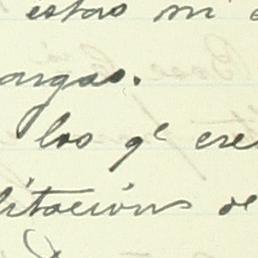 estas mi
argas.
los qe cre
litacións de